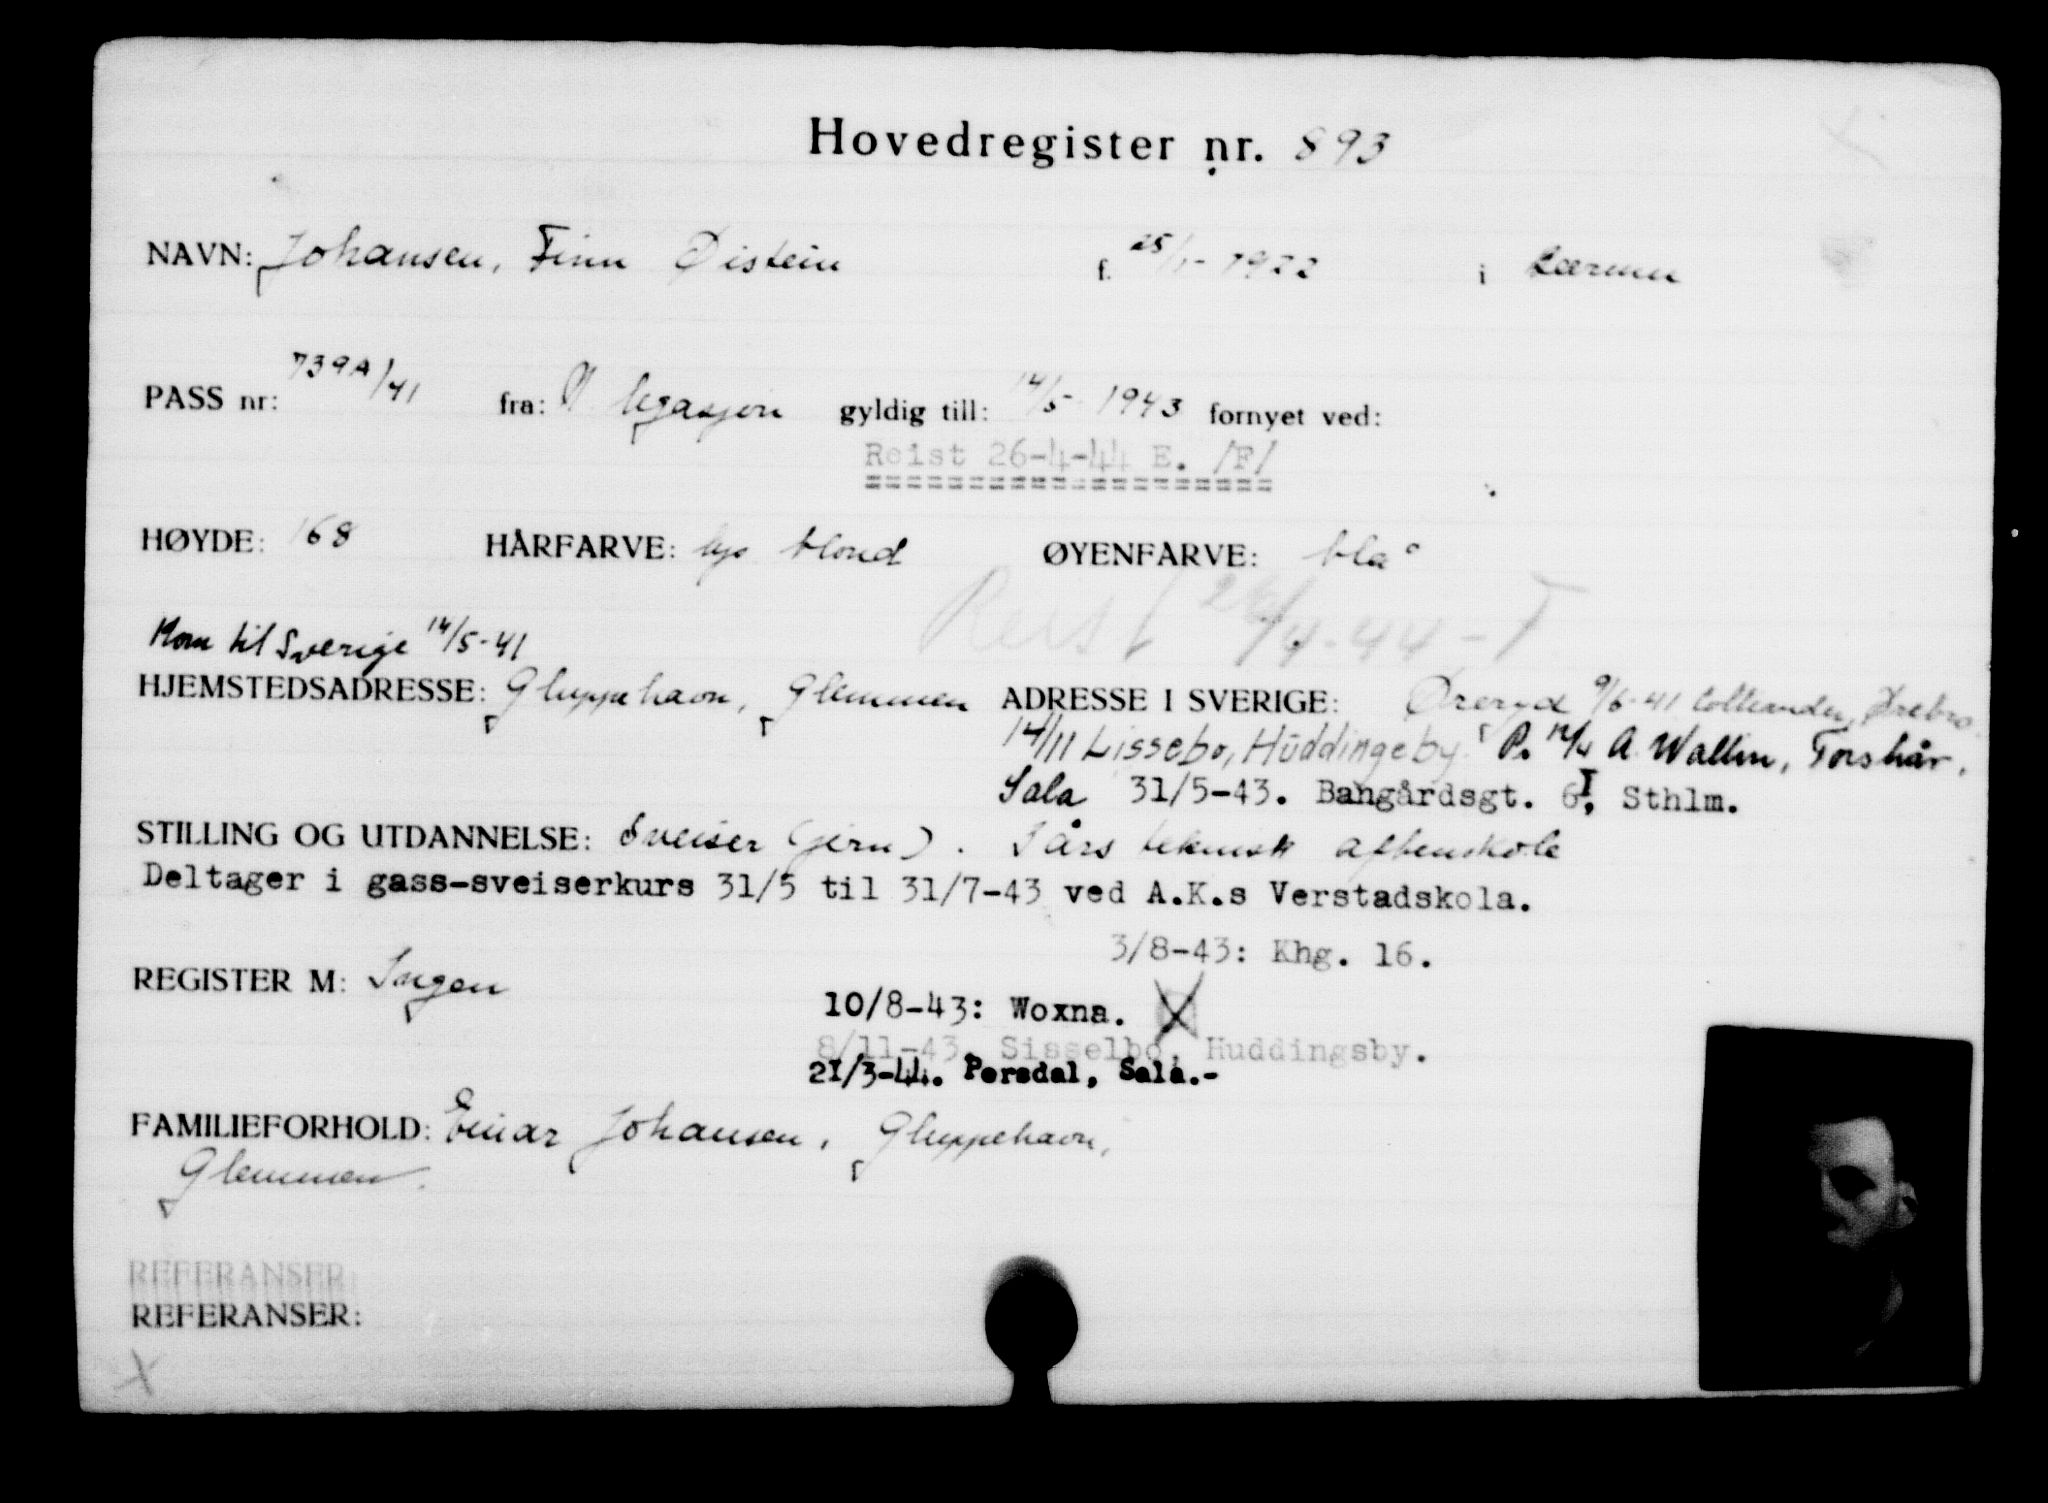 Hovedregister nr. 893
NAVN: Johansen, Finn Øistein f. 25/1- 1922 i
PASS nr: 739A/41 fra: N legasjon gyldig till: 14/5- 1943 fornyet ved:
Reist 26-4-44 E. /F/
HØYDE: 168 HÅRFARVE: lys blond ØYENFARVE: blå
Reist 26/4-44-T
Kom til Sverige 14/5-41
HJEMSTEDSADRESSE: Gluppehavn, Glemmen ADRESSE I SVERIGE: Øreryd 9/6-41 Örebro
14/11 Lissebo, Huddingeby P. A. Wallin, Torshår,
Sala 31/5-43. Bangårdsgt. 6I, Sthlm.
STILLING OG UTDANNELSE: Sveiser (jern). I års teknisk aftenskole
Deltager i gass-sveiserkurs 31/5 til 31/7-43 ved A.K.s Verstadskola.
3/8-43: Khg. 16.
REGISTER M: Ingen
10/8-43: Woxna. X
8/11-43. Sisselbo, Huddingsby.
21/3-44. Persdal, Sala.-
FAMILIEFORHOLD: Einar Johansen, Gluppehavn,
Glemmen.
REFERANSER
REFERANSER:
X